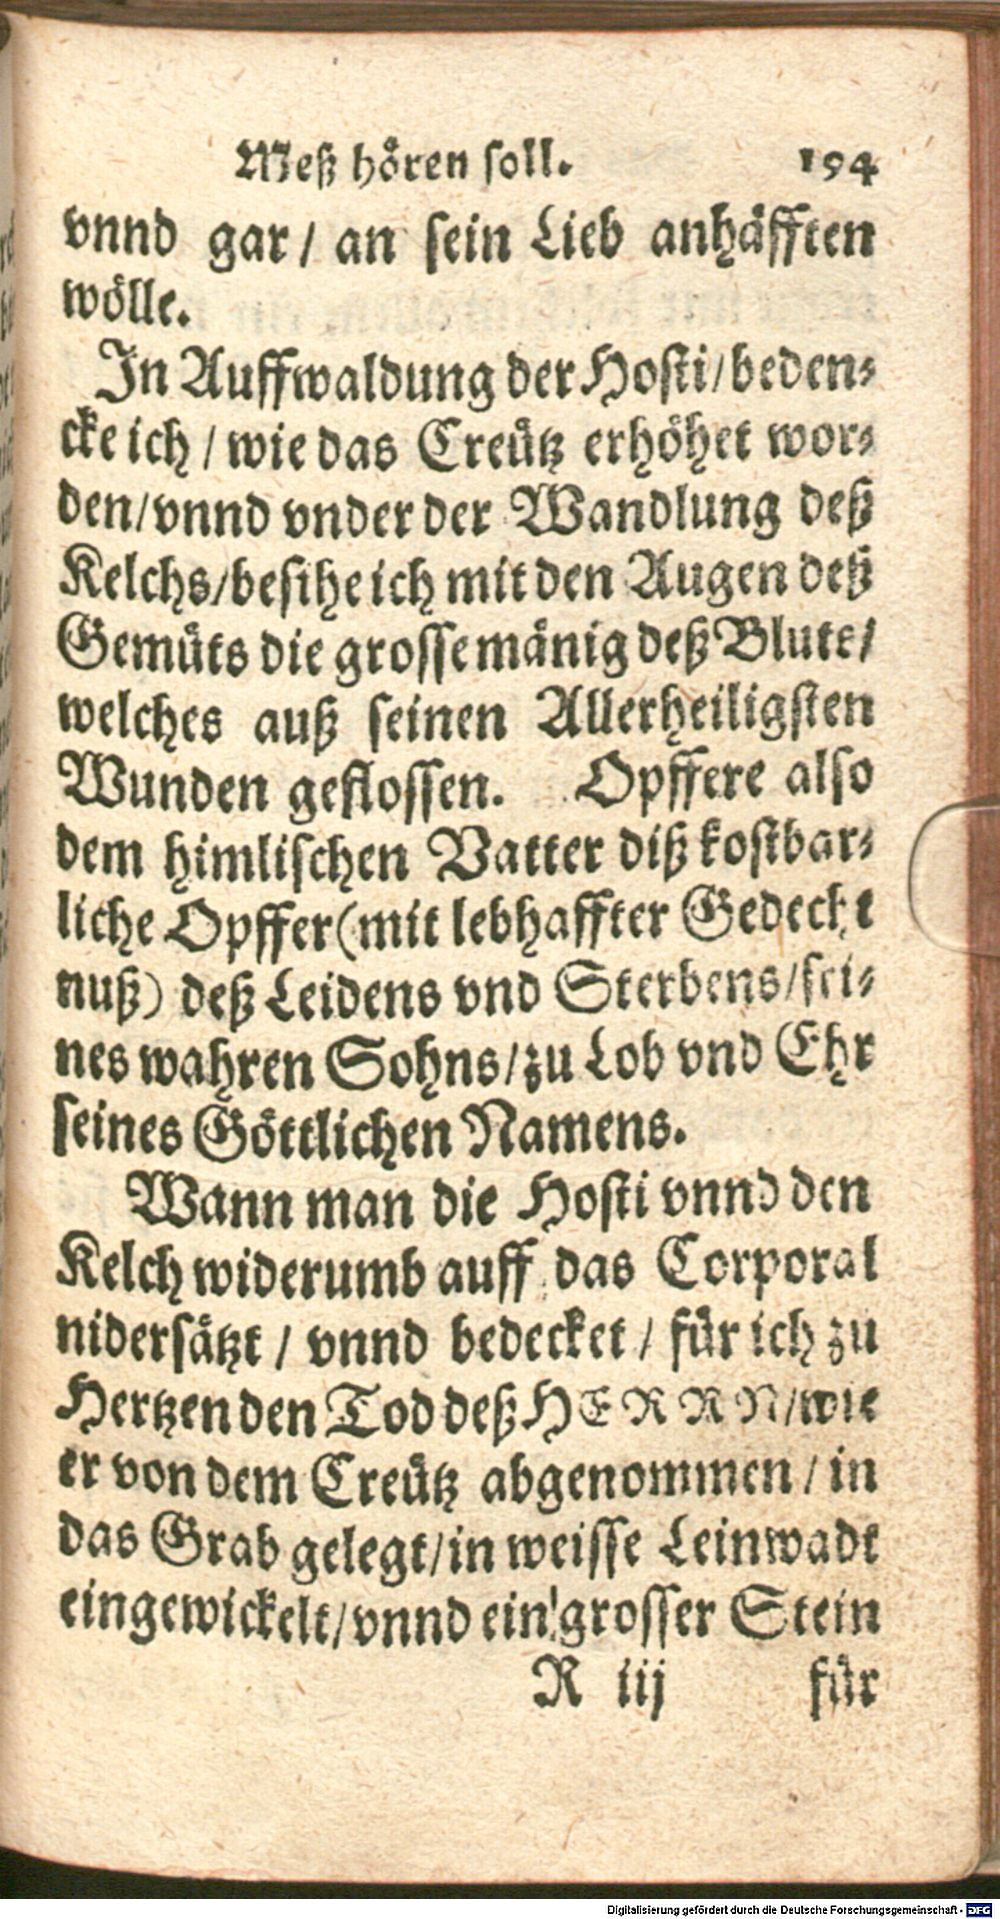 Meß hören soll. 194
vnnd gar / an sein Lieb anhäfften
wölle.
In Auffwaldung der Hosti / beden-
cke ich / wie das Creütz erhöhet wor-
den / vnnd vnder der Wandlung deß
Kelchs / besihe ich mit den Augen deß
Gemüts die grosse mänig deß Blutt /
welches auß seinen Allerheiligsten
Wunden geflossen. Opffere also
dem himlischen Vatter diß kostbar-
liche Opffer (mit lebhaffter Gedecht
nuß) deß Leidens vnd Sterbens / sei-
nes wahren Sohns / zu Lob vnd Ehr
seines Göttlichen Namens.
Wann man die Hosti vnnd den
Kelch widerumb auff das Corporal
nidersätzt / vnnd bedecket / für ich zu
Hertzen den Tod deß HERRN / wie
er von dem Creütz abgenommen / in
das Grab gelegt / in weisse Leinwadt
eingewickelt / vnnd ein grosser Stein
R iij für
Digitalisierung gefördert durch die Deutsche Forschungsgemeinschaft - DFG